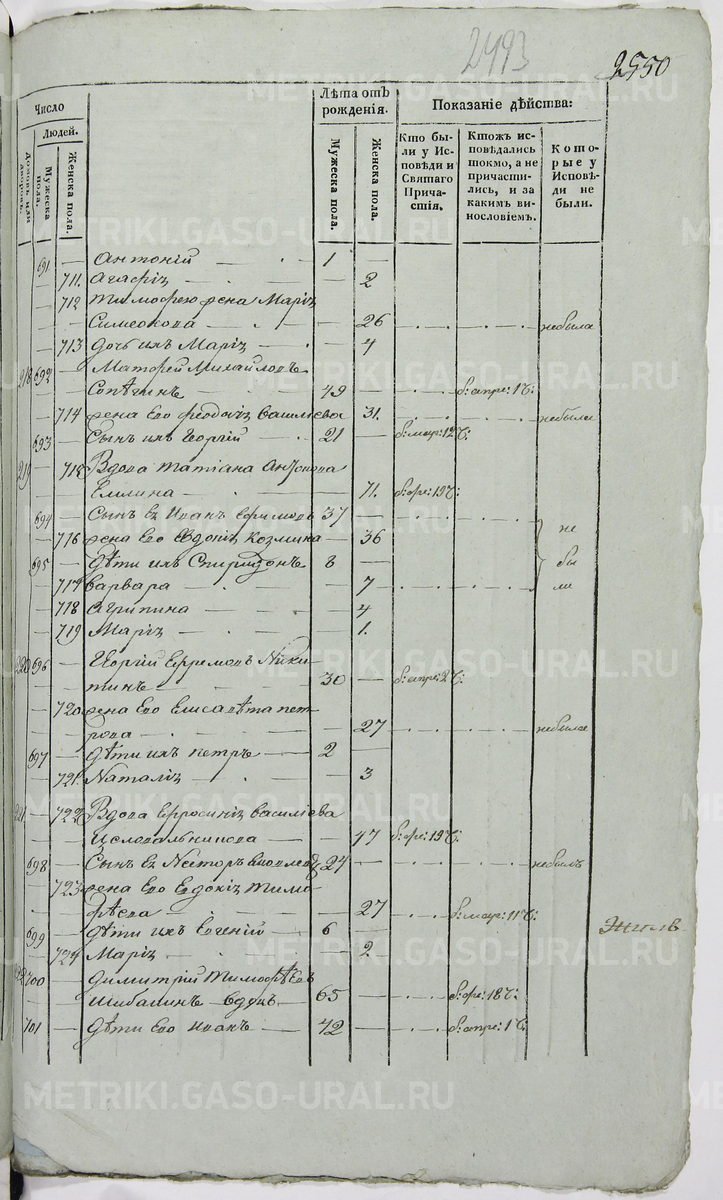 2493
2550
Число
Людей.
Домовъ или дворовъ.
Мужеска пола.
Женска пола.
Лѣта отъ рожденія.
Мужеска пола.
Женска пола.
Показаніе дѣйства:
Кто были у Исповѣди и Святаго Причастія.
Ктожъ исповѣдались токмо, а не причастились, и за какимъ винословіемъ.
Которые у Исповѣди не были.
691 — Антоній — 1 —
711. Агафія — 2
712 Тимофею жена Марія
Симеонова — 26 не была
713 Дочь ихъ Марія — 4
218 692 — Матөей Михайловъ
49 — б: апре: 1 ч:
714 жена его Феодосія Василіева 31. не была
693 — Сынъ ихъ Георгій — 21 — б: мар: 12 ч:
219 715 Вдова Татіана Антонова
71. б: фе: 19 ч:
694 — Сынъ ея Иванъ Ефимовъ 37 —
716 жена его Евдокія Козмина — 36 не
695 — Дѣти ихъ Спиридонъ — 8 — бы
717 Варвара — 7 ли
718 Агрипина — 4
719 Марія — 1.
220 696 — Георгій Ефремовъ Ники-
тинъ — 30 — б: апре: 2 ч:
720 жена его Елисавета Пет-
рова — 27 не была
697 — Дѣти ихъ Петръ — 2 —
721. Наталія — 3
221 722 Вдова Евфросинія Василіева
Целовальникова — 47 б: фе: 19 ч:
698 — Сынъ ея Несторъ 24 — не былъ
723 жена его Евдокія Тимо-
фѣева — 27 б: мар: 11 ч:
699 — Дѣти ихъ Евгеній — 6 —
724 Марія — 2
222 700 — Димитрій Тимофѣевъ
Шибалинъ вдовъ — 65 — б: фе: 18 ч:
701 — Дѣти его Иванъ — 42 — б: апре: 1 ч:
METRIKI.GASO-URAL.RU